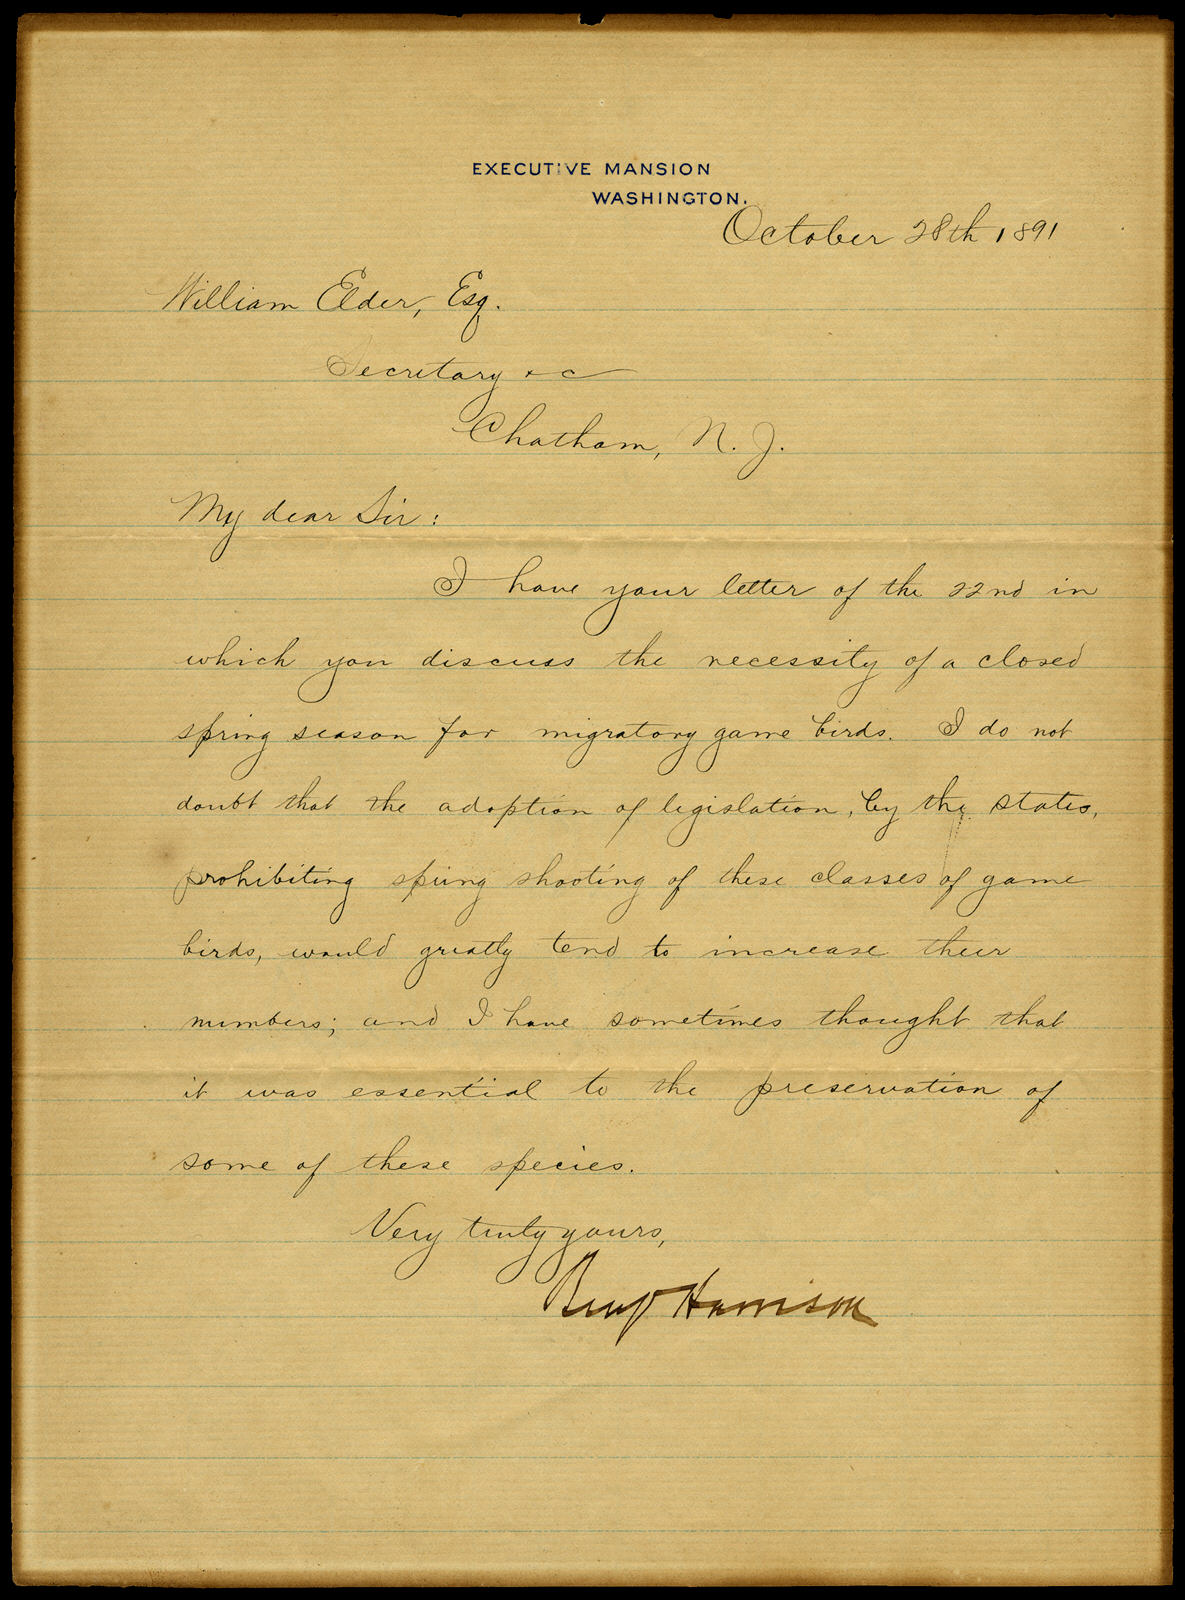 EXECUTIVE MANSION
WASHINGTON.
October 28th 1891
William Elder, Esq.
Secretary &c
Chatham, N. J.
My dear Sir:
I have your letter of the 22nd in
which you discuss the necessity of a closed
spring season for migratory game birds. I do not
doubt that the adoption of legislation, by the states,
prohibiting spring shooting of these classes of game
birds, would greatly tend to increase their
numbers; and I have sometimes thought that
it was essential to the preservation of
some of these species.
Very truly yours,
Benj Harrison